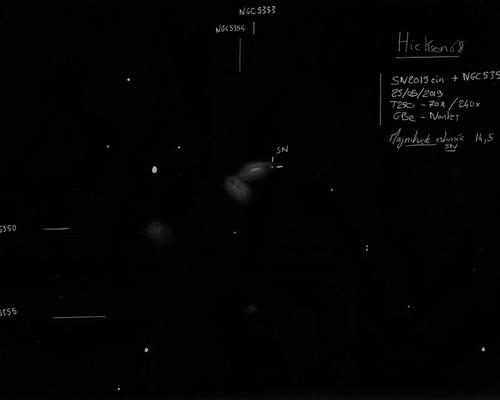 NGC5353
NGC5354
Hickson 68
SN2019ein + NGC535
25/05/2019
T250 - 70x / 240x
GBe - Nantes
Magnitude estimée 14,5
SN
SN
5350
5355